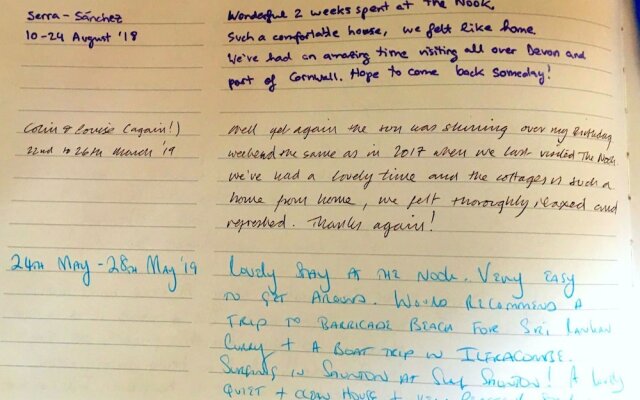 Serra - Sánchez
10-24 August '18
Wonderful 2 weeks spent at the Nook,
Such a comfortable house, we felt like home.
We've had an amazing time visiting all over Devon and
part of Cornwall. Hope to come back someday!
Colin & Louise (again!)
22nd to 26th March '19
Well yet again the sun was shining over my Birthday
weekend the same as in 2017 when we last visited The Nook.
We've had a lovely time and the cottage is such a
home from home, we felt thoroughly relaxed and
refreshed. Thanks again!
24th May - 28th May '19
Lovely stay at the Nook. Very easy
to get around. Would recommend a
trip to Barricade Beach for Sri Lankan
Curry + a boat trip in Ilfracombe.
Surfing in Saunton at Surf Saunton! A lovely
quiet + clean house +